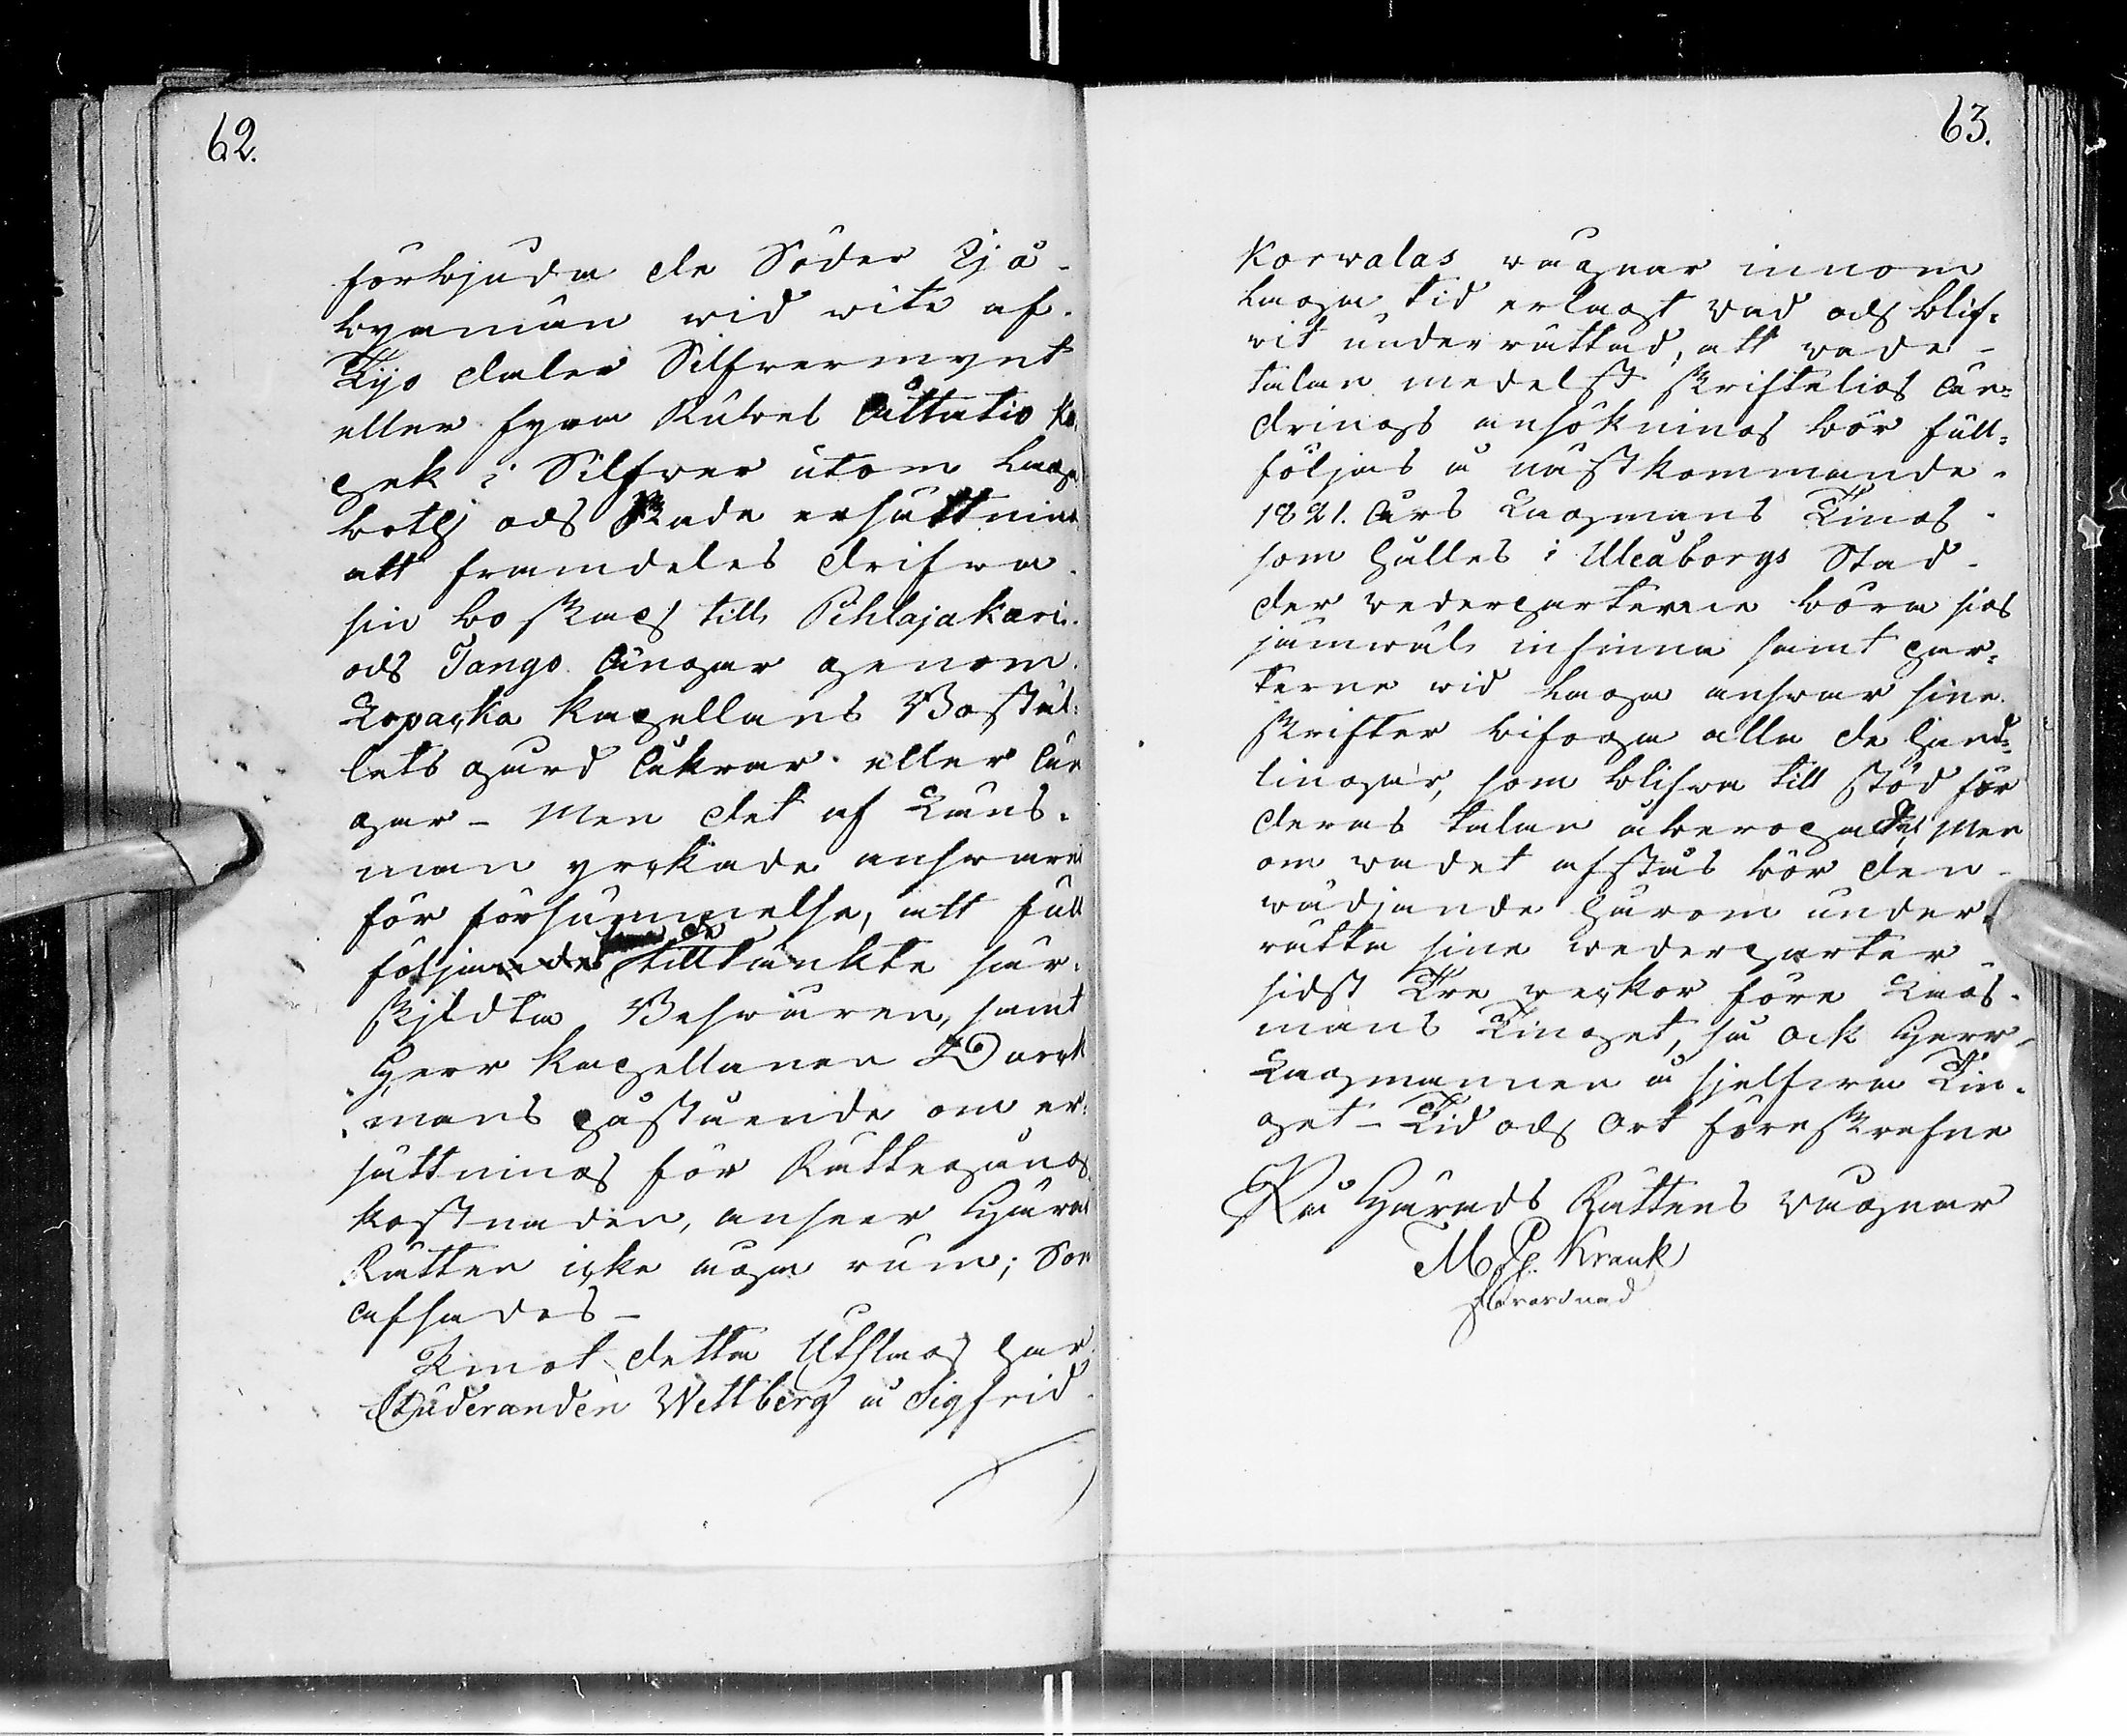 62.
förbjuda de Söder Ijå-
byamän wid wite af
Tijo daler Silfvermynt
eller fyra Rubel Åttatio Ko,
pek i Silfver utom laga
böth och Skade ersättning
att framdeles drifwa
sin boskap till Pihlajakari
och Jango ängar genom
Kapellans Boställ:
lets gärd åkrar eller än
gar - Men det af Läns-
man yrkade answaret
för försummelse, att full
följa de tilltänkte sär-
skildta Beswären, samt
Herr Kapellanen
mans påstående om er:
sättning för Rättegångs
kostnaden, anseer Härads
Rätten icke äga rum; Som
afsades -
Emot detta Utslag har
Studeranden Wettberg å Sigfrid
63.
Korwalas wägnar innom
laga tid erlagt wad och blif-
wit underrättad, att wade-
talan medelst skriftelig än-
drings ansökning bör full-
följas å nästkommande
1821. års Lagmans Ting
som hålles i Uleåborgs Stad
der wederparterne böra sig
jämwäl infinna samt par-
terne wid laga answar sine
skrifter bifoga alla de hand-
lingar, som blifwa till stöd för
deras talan åberopade, Men
om wadet afstås bör den
wädjande härom under-
rätta sine wederparter
sidst Tre weckor före Lag-
mans Tinget, så ock Herr
Lagmannen å sjelfwa Tin-
get - Tid och Ort föreskrefne
På Härads Rättens wägnar
M. P. Krank
Förordnad